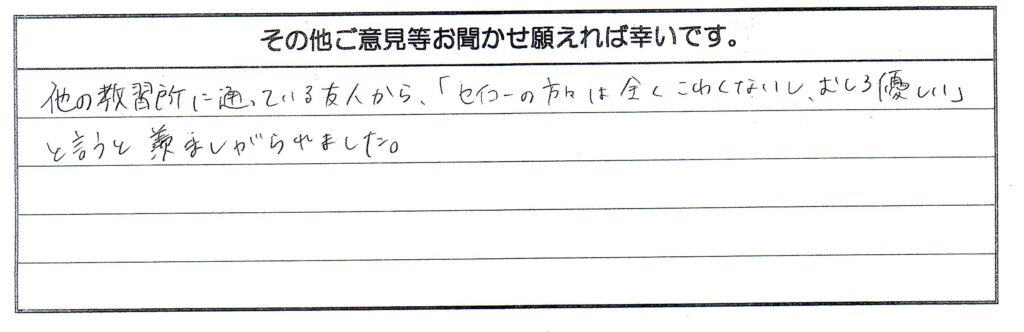 その他ご意見等お聞かせ願えれば幸いです。
他の教習所に通っている友人から、「セイコーの方々は全くこわくないし、むしろ優しい」
と言うと羨ましがられました。